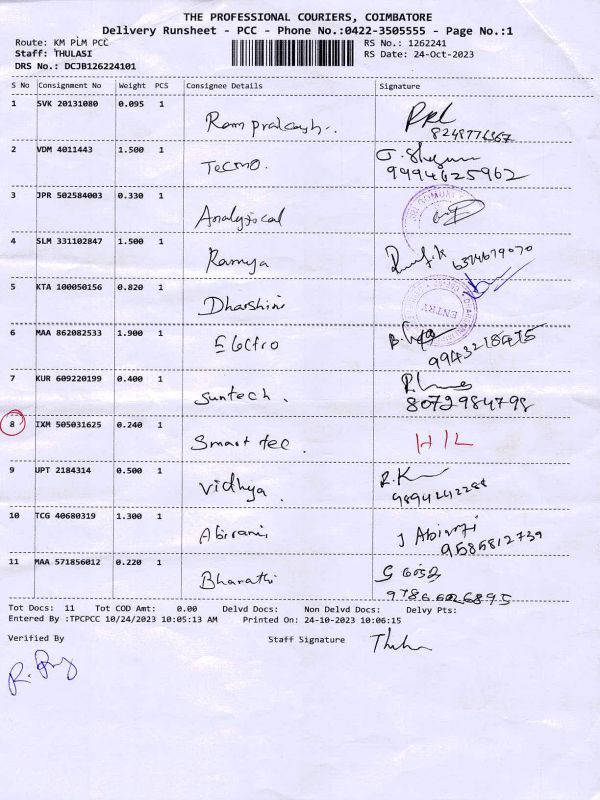 THE PROFESSIONAL COURIERS, COIMBATORE
Delivery Runsheet - PCC - Phone No.:0422-3505555 - Page No.:1
Route: KM PLM PCC RS No.: 1262241
Staff: THULASI RS Date: 24-Oct-2023
DRS No.: DCJB126224101
S No Consignment No Weight PCS Consignee Details Signature
1 SVK 20131080 0.095 1 Ram prakash..
8248776367
2 VDM 4011443 1.500 1 Tecmo.
9994625962
3 JPR 502584003 0.330 1 Analytical
4 SLM 331102847 1.500 1 Ramya 6374679070
5 KTA 100050156 0.820 1 Dharshini ENTRY
6 MAA 862082533 1.900 1 Electro
9943218475
7 KUR 609220199 0.400 1 Suntech.
8072984798
8 IXM 505031625 0.240 1 Smart tec. H/L
9 UPT 2184314 0.500 1 Vidhya. R.K
10 TCG 40680319 1.300 1 Abirami J Abirami
9585812739
11 MAA 571856012 0.220 1 Bharathi
Tot Docs: 11 Tot COD Amt: 0.00 Delvd Docs: Non Delvd Docs: Delvy Pts:
Entered By :TPCPCC 10/24/2023 10:05:13 AM Printed On: 24-10-2023 10:06:15
Verified By Staff Signature